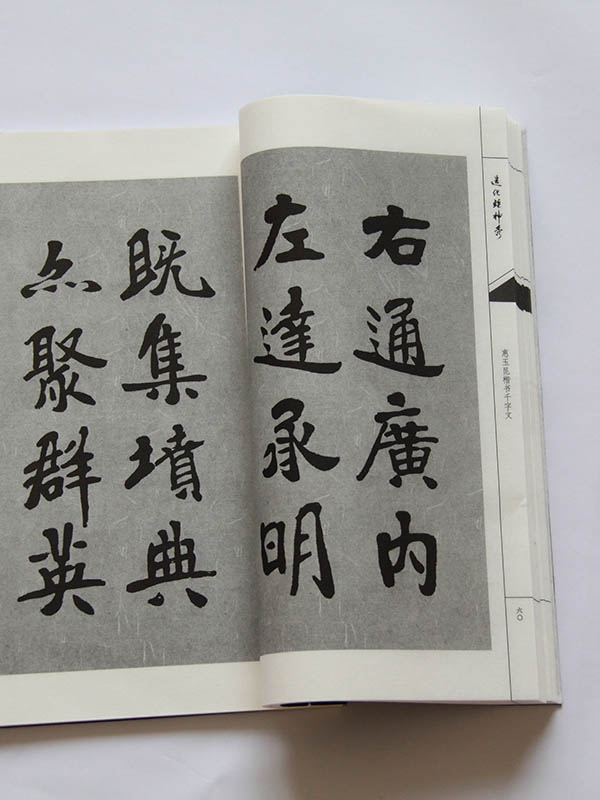 右通廣內
左達承明
既集墳典
亦聚群英
造化鍾神秀
惠玉昆楷书千字文
六〇